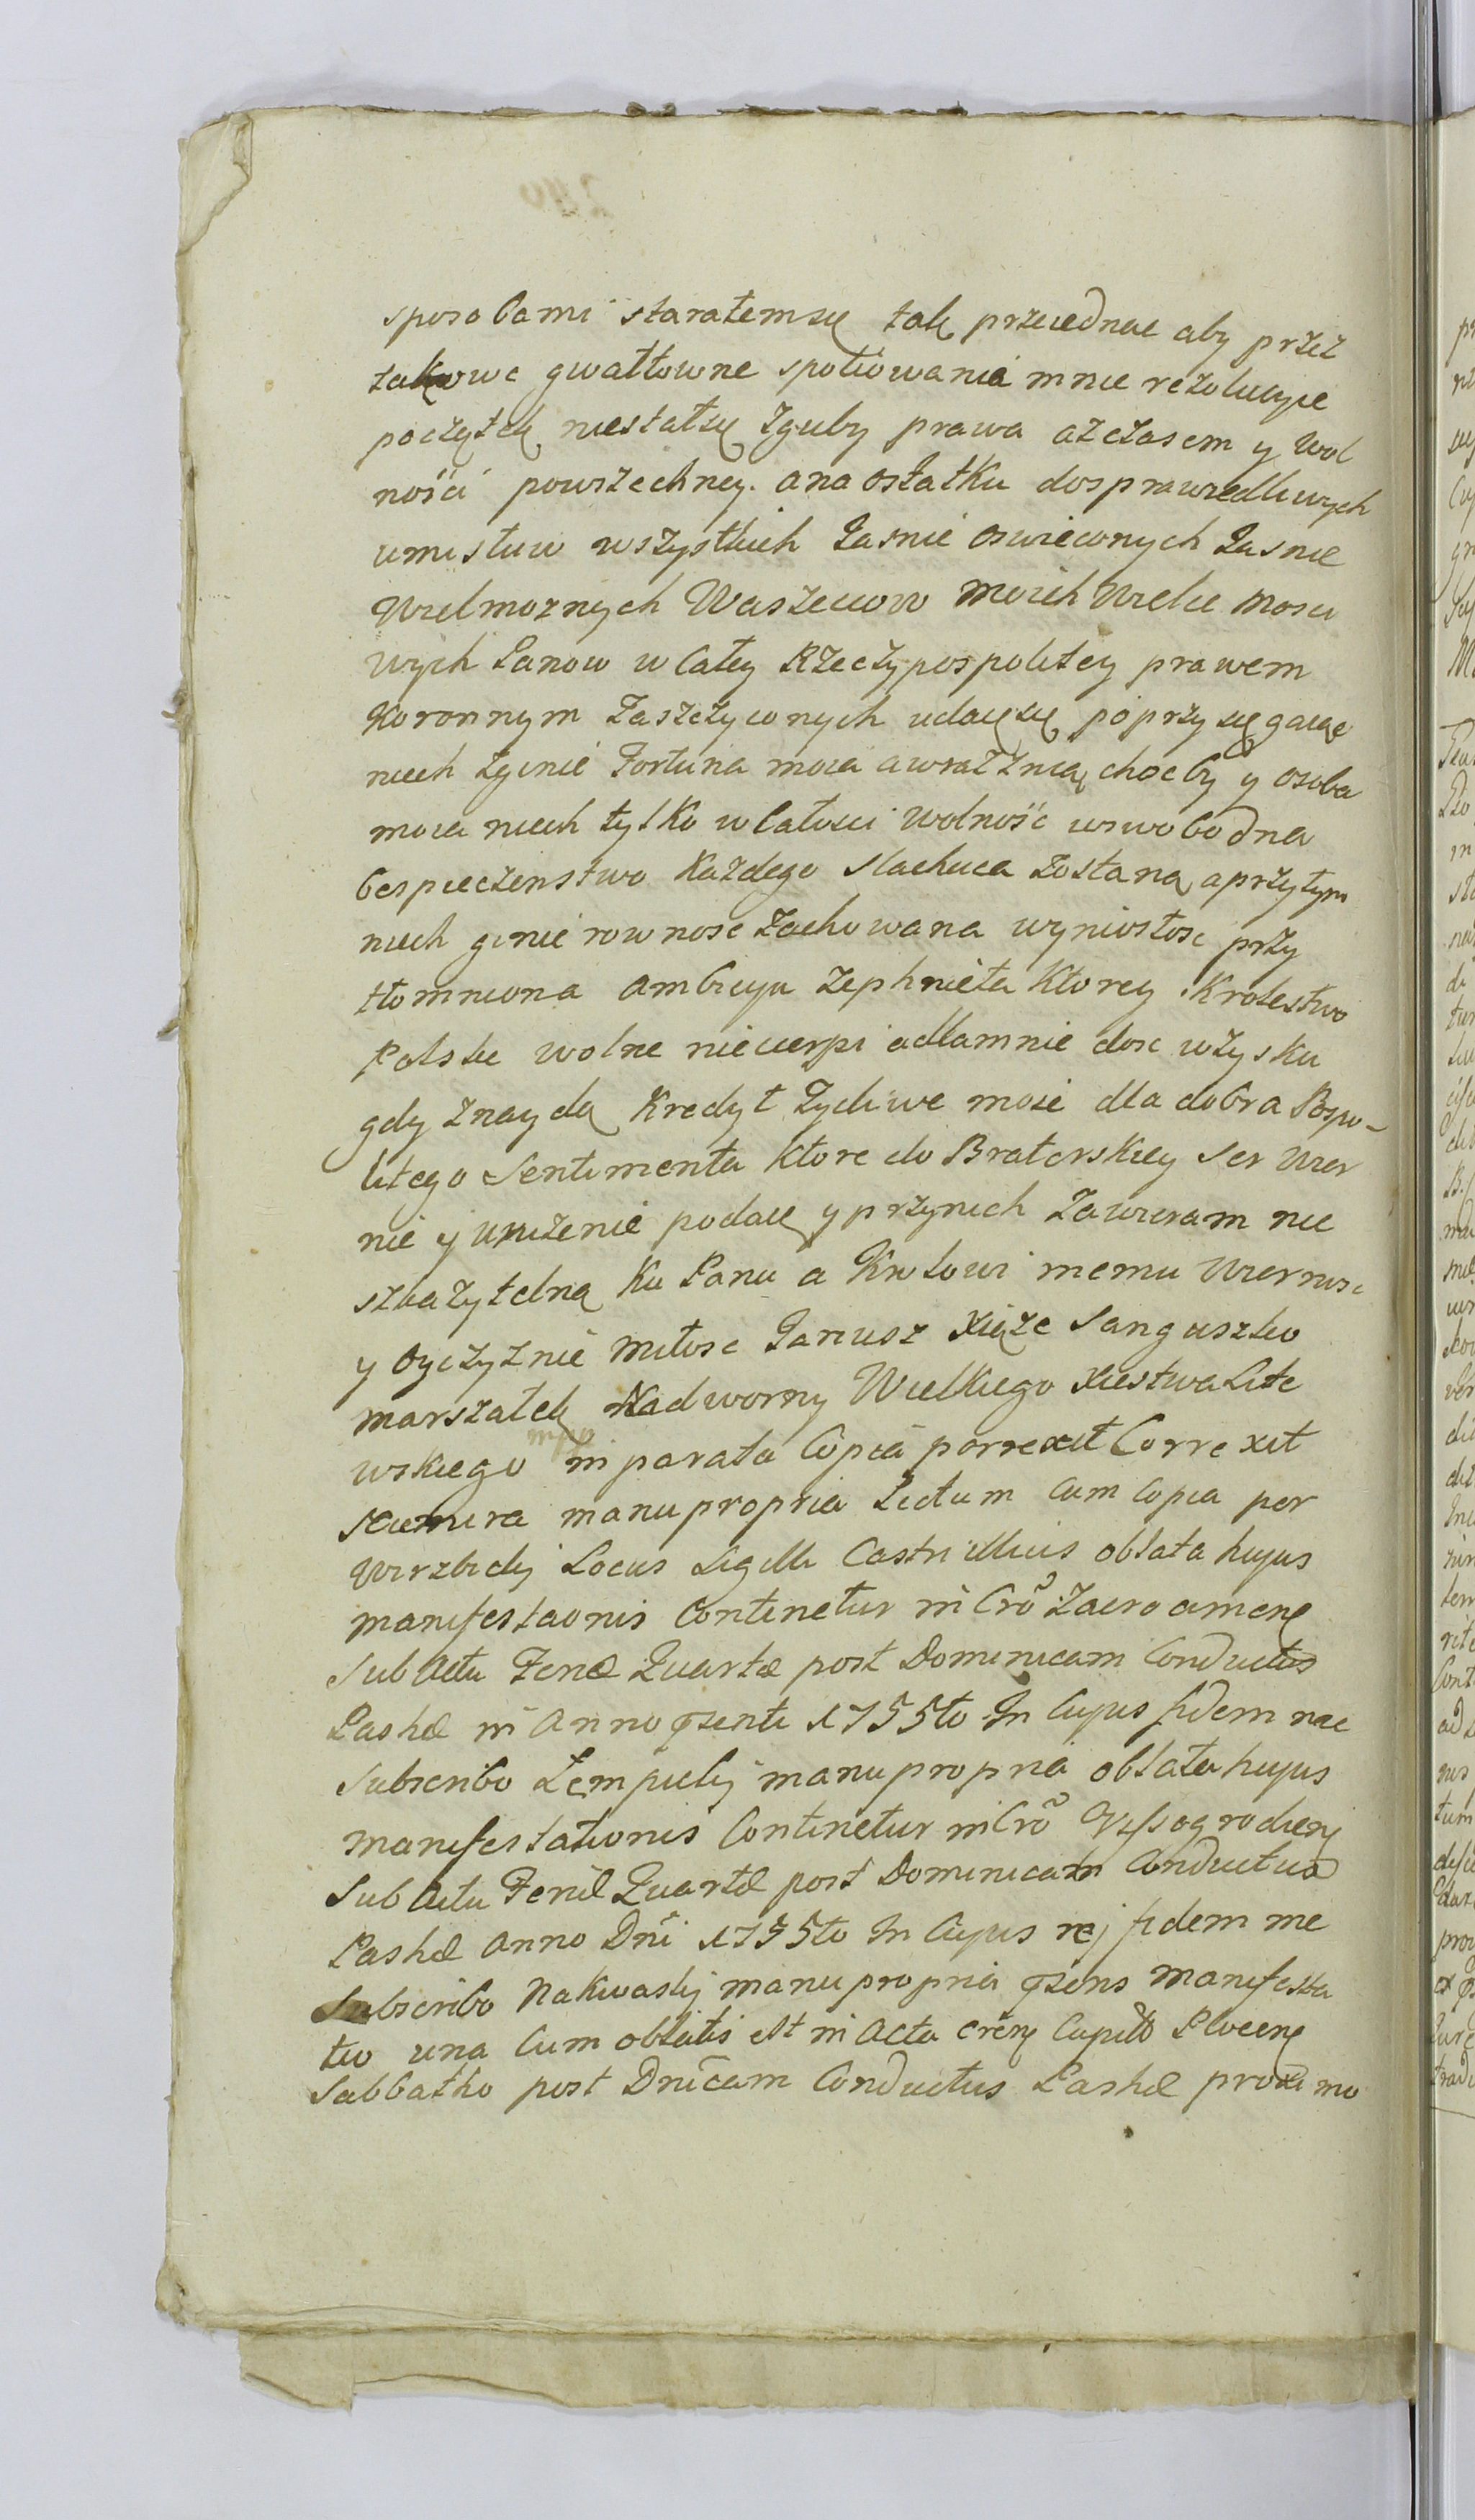 sposobami starałemsię tak przeiednac aby przez
takowe gwałtowne spoliowania mnie rezolucyie
początek niestałsię zguby prawa azczasem y wol
nosci powszechney. ana ostatku dosprawiedliwych
umisłuw wszystkich Jasnie oswieconych Jasnie
Wielmoznych Waszeciow moich Wielce mosci
wych Panow w Całey Rzeczypospolitey prawem
Koronnym zaszczyconych udaięsię poprzysięgaiąc
niech zginie Fortuna moia awraz znią chocby y osoba
moia niech tylko w Całosci wolność uswobodna
bespieczenstwo Kazdego slachcica zostaną aprzytym
niech ginie rownosc zachowana wyniosłosc przy
tłomniona ambicya zephnieta Ktorey Krolestwo
Polskie wolne niecierpi adlamnie dosc wzysku
gdy znaydą Kredyt zycliwe moie dla dobra Pospo-
litego Sentimenta Ktore do Braterskiey Ser wier
nie y unizenie podaię y przynich zawieram nie
szkazytelną Ku Panu a Krolowi memu Wiernosc
y Oyczyznie miłosc Janusz Xiąze Sanguszko
marszałek Nadworny Wielkiego Xiestwa Lite
wskiego in parata Copia porrexit Correxit
manu propria Lectum Cum Copia per
Wirzbicky Locus Sigilli Castri illius oblata hujus
manifestaonis Continetur in Cro Zacrocimen
Sub Actu Feriæ Quartæ post Dominicam Conductus
Paschæ in Anno pzenti 1755to In Cujus fidem me
Subscribo Lempicky manu propria oblata hujus
manifestationis Continetur in Cro Wyssogrodien
Sub Actu Feriæ Quartæ post Dominicam Conductus
Paschæ Anno Dni 1755to In Cujus rej fidem me
Subscribo Nakwasky manu propria pzens manifesta
tio una Cum oblatis est in Acta Cren Capitl Plocen
Sabbatho post Dnicam Conductus Paschæ proximo